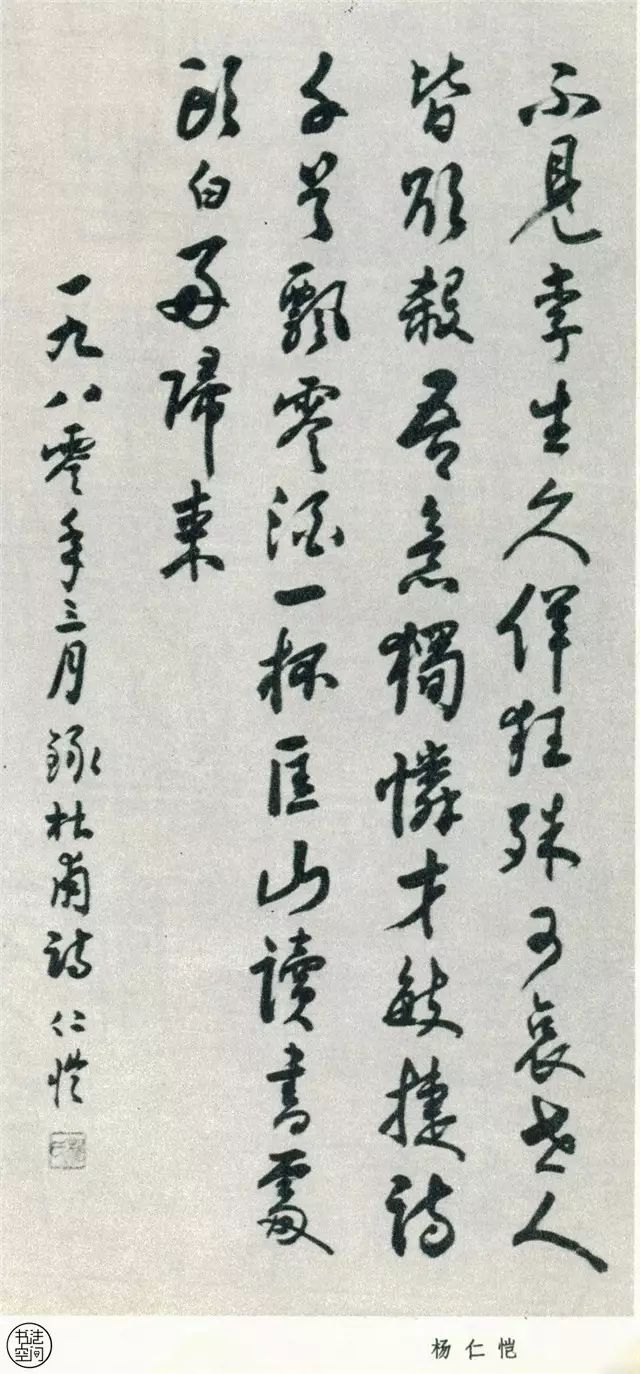 不見李生久佯狂殊可哀世人
皆欲殺吾意獨憐才敏捷詩
千首飄零酒一杯匡山讀書處
頭白好歸來
一九八零年三月録杜甫詩仁愷
杨仁恺
书法
空间